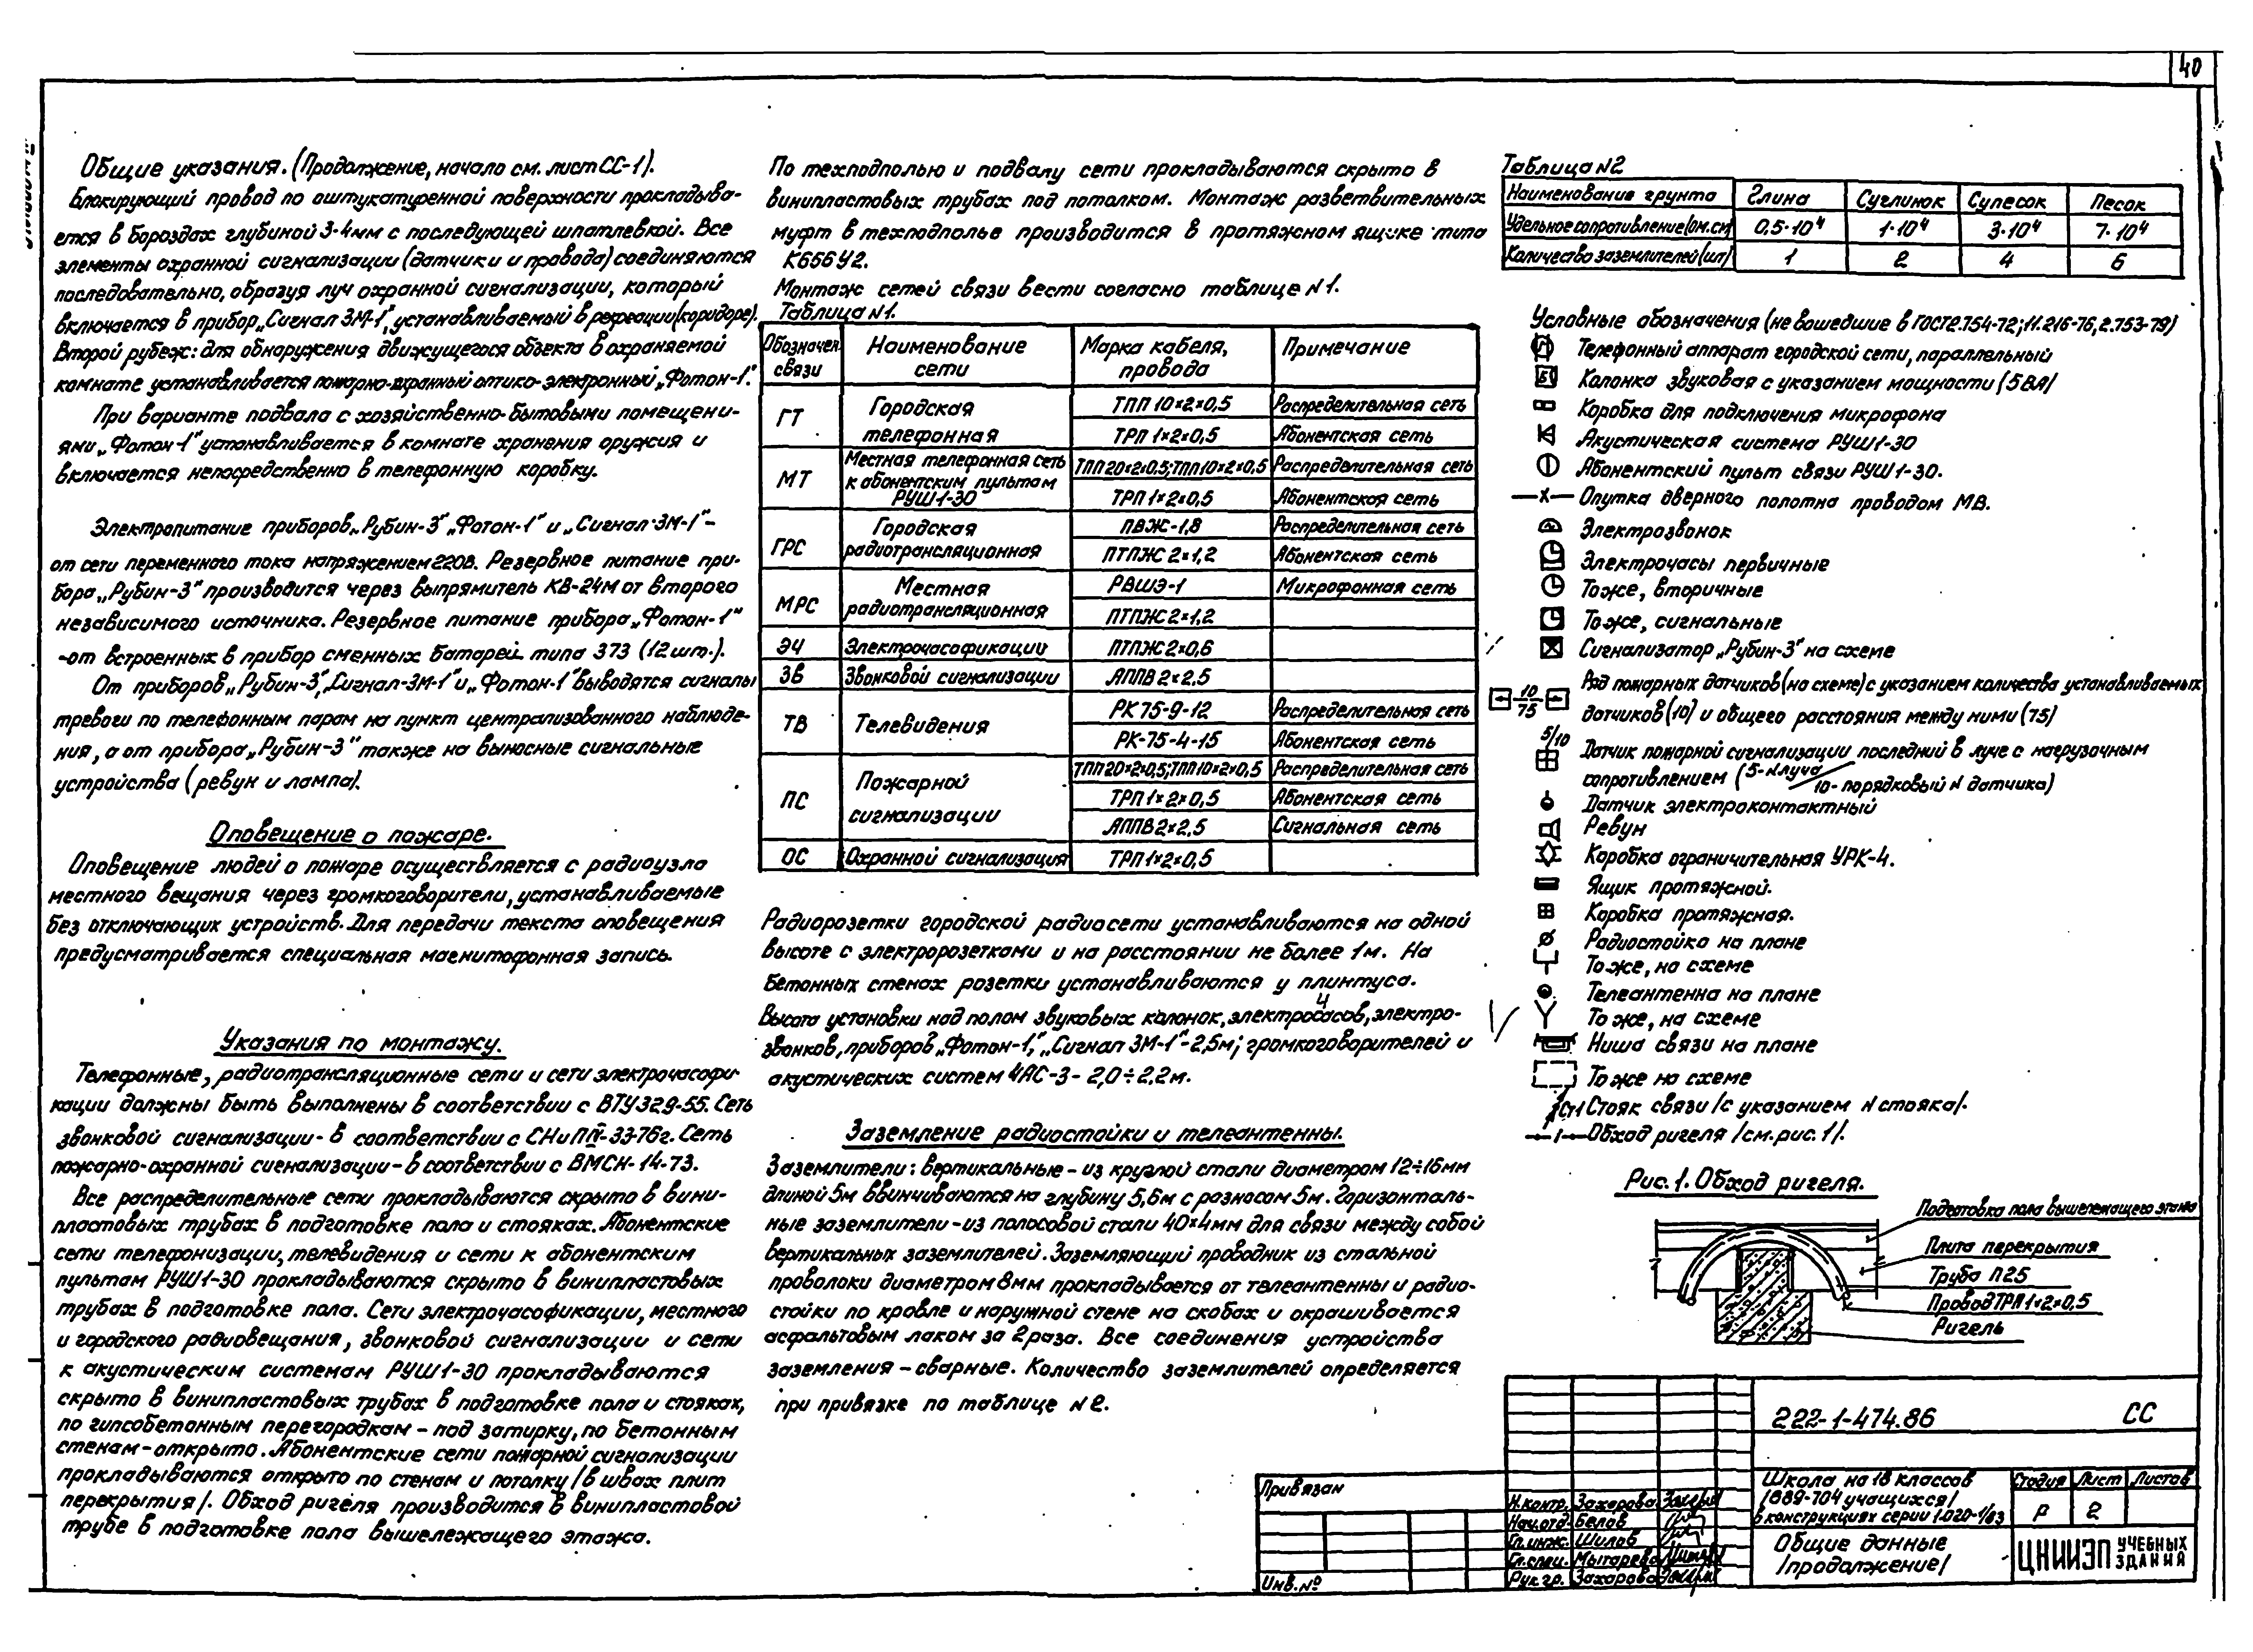 40
Общие указания. (Продолжение, начало см. лист СС-1).
Блокирующий провод по оштукатуренной поверхности прокладыва-
ется в бороздах глубиной 3-4мм с последующей шпатлевкой. Все
элементы охранной сигнализации (датчики и провода) соединяются
последовательно, образуя луч охранной сигнализации, который
включается в прибор „Сигнал ЗМ-1", устанавливаемый в рекреации (коридоре).
Второй рубеж: для обнаружения движущегося объекта в охраняемой
комнате устанавливается пожарно-охранный оптико-электронный „Фотон-1".
При варианте подвала с хозяйственно-бытовыми помещени-
ями „Фотон-1" устанавливается в комнате хранения оружия и
включается непосредственно в телефонную коробку.
Электропитание приборов „Рубин-3" „Фотон-1" и „Сигнал-ЗМ-1" -
от сети переменного тока напряжением 220В. Резервное питание при-
бора „Рубин-3" производится через выпрямитель КВ-24М от второго
независимого источника. Резервное питание прибора „Фотон-1"
-от встроенных в прибор сменных батарей типа 373 (12 шт.).
От приборов „Рубин-3", „Сигнал-ЗМ-1" и „Фотон-1" выводятся сигналы
тревоги по телефонным парам на пункт централизованного наблюде-
ния, а от прибора „Рубин-3" также на выносные сигнальные
устройства (ревун и лампа).
Оповещение о пожаре.
Оповещение людей о пожаре осуществляется с радиоузла
местного вещания через громкоговорители, устанавливаемые
без отключающих устройств. Для передачи текста оповещения
предусматривается специальная магнитофонная запись.
Указания по монтажу.
Телефонные, радиотрансляционные сети и сети электрочасофи-
кации должны быть выполнены в соответствии с ВТУ 329-55. Сеть
звонковой сигнализации - в соответствии с СНиП III-33-76г. Сеть
пожарно-охранной сигнализации - в соответствии с ВМСН-14-73.
Все распределительные сети прокладываются скрыто в вини-
пластовых трубах в подготовке пола и стояках. Абонентские
сети телефонизации, телевидения и сети к абонентским
пультам РУШ1-30 прокладываются скрыто в винипластовых
трубах в подготовке пола. Сети электрочасофикации, местного
и городского радиовещания, звонковой сигнализации и сети
к акустическим системам РУШ1-30 прокладываются
скрыто в винипластовых трубах в подготовке пола и стояках,
по гипсобетонным перегородкам - под затирку, по бетонным
стенам - открыто. Абонентские сети пожарной сигнализации
прокладываются открыто по стенам и потолку /в швах плит
перекрытия/. Обход ригеля производится в винипластовой
трубе в подготовке пола вышележащего этажа.
По техподполью и подвалу сети прокладываются скрыто в
винипластовых трубах под потолком. Монтаж разветвительных
муфт в техподполье производится в протяжном ящике типа
К656У2.
Монтаж сетей связи вести согласно таблице N1.
Таблица N1.
Обозначен. связи | Наименование сети | Марка кабеля, провода | Примечание
ГТ | Городская телефонная | ТПП 10×2×0,5 | Распределительная сеть
ТРП 1×2×0,5 | Абонентская сеть
МТ | Местная телефонная сеть к абонентским пультам РУШ1-30 | ТПП20×2×0.5; ТПП10×2×0,5 | Распределительная сеть
ТРП 1×2×0,5 | Абонентская сеть
ГРС | Городская радиотрансляционная | ПВЖ-1,8 | Распределительная сеть
ПТПЖ 2×1,2 | Абонентская сеть
МРС | Местная радиотрансляционная | РВШЭ-1 | Микрофонная сеть
ПТПЖ 2×1,2
ЭЧ | Электрочасофикации | ПТПЖ 2×0,6
ЗВ | Звонковой сигнализации | АППВ 2×2.5
ТВ | Телевидения | РК 75-9-12 | Распределительная сеть
РК-75-4-15 | Абонентская сеть
ПС | Пожарной сигнализации | ТПП20×2×0,5; ТПП10×2×0,5 | Распределительная сеть
ТРП 1×2×0,5 | Абонентская сеть
АППВ 2×2,5 | Сигнальная сеть
ОС | Охранной сигнализация | ТРП 1×2×0,5
Радиорозетки городской радиосети устанавливаются на одной
высоте с электророзетками и на расстоянии не более 1м. На
бетонных стенах розетки устанавливаются у плинтуса.
Высота установки над полом звуковых колонок, электрочасов, электро-
звонков, приборов „Фотон-1", „Сигнал ЗМ-1" - 2,5м; громкоговорителей и
акустических систем 4АС-3 - 2,0÷2,2м.
Заземление радиостойки и телеантенны.
Заземлители: вертикальные - из круглой стали диаметром 12÷16мм
длиной 5м ввинчиваются на глубину 5,6м с разносом 5м. Горизонталь-
ные заземлители - из полосовой стали 40×4мм для связи между собой
вертикальных заземлителей. Заземляющий проводник из стальной
проволоки диаметром 8мм прокладывается от телеантенны и радио-
стойки по кровле и наружной стене на скобах и окрашивается
асфальтовым лаком за 2 раза. Все соединения устройства
заземления - сварные. Количество заземлителей определяется
при привязке по таблице N2.
Таблица N2
Наименование грунта | Глина | Суглинок | Супесок | Песок
Удельное сопротивление (ом.см) | 0,5·10⁴ | 1·10⁴ | 3·10⁴ | 7·10⁴
Количество заземлителей (шт) | 1 | 2 | 4 | 6
Условные обозначения (не вошедшие в ГОСТ2.754-72; 11.216-76, 2.753-79)
Телефонный аппарат городской сети, параллельный
5 Колонка звуковая с указанием мощности (5ВА)
Коробка для подключения микрофона
Акустическая система РУШ1-30
Абонентский пульт связи РУШ1-30.
—х— Опутка дверного полотна проводом МВ.
Электрозвонок
Электрочасы первичные
То же, вторичные
То же, сигнальные
Сигнализатор „Рубин-3" на схеме
10/75 Ряд пожарных датчиков (на схеме) с указанием количества устанавливаемых
датчиков (10) и общего расстояния между ними (75)
5/10 Датчик пожарной сигнализации последний в луче с нагрузочным
сопротивлением (5-N луча / 10-порядковый N датчика)
Датчик электроконтактный
Ревун
Коробка ограничительная УРК-4.
Ящик протяжной.
Коробка протяжная.
Радиостойка на плане
То же, на схеме
Телеантенна на плане
То же, на схеме
Ниша связи на плане
То же на схеме
Ст1 Стояк связи /с указанием N стояка/.
Обход ригеля /см. рис. 1/.
Рис. 1. Обход ригеля.
Подготовка пола вышележащего этажа
Плита перекрытия
Труба П25
Провод ТРП 1×2×0,5
Ригель
222-1-474.86 СС
Привязан
Инв. №
Н.контр. Захарова
Нач.отд. Белов
Гл.инж. Шилов
Гл.спец. Мытарева
Рук.гр. Захарова
Школа на 18 классов
/689-704 учащихся/
в конструкциях серии 1.020-1/83
Стадия | Лист | Листов
Р | 2
Общие данные
/продолжение/
ЦНИИЭП УЧЕБНЫХ ЗДАНИЯ